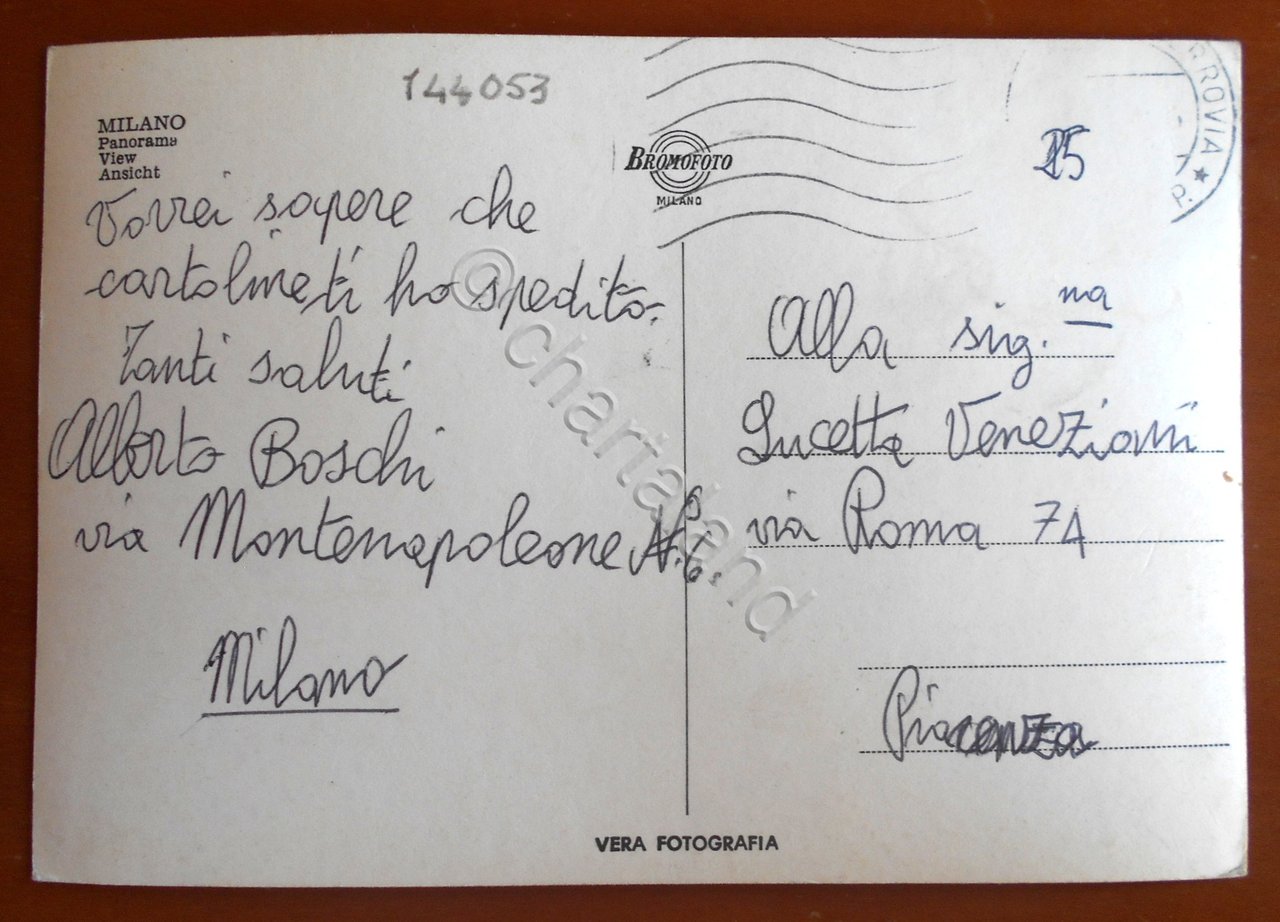 144053
MILANO
Panorama
View
Ansicht
BROMOFOTO
MILANO
RROVIA ★ P.
Vorrei sapere che
cartoline ti ho spedito.
Tanti saluti
Alberto Boschi
via Montenapoleone N. 6.
Milano
Alla sig.na
Lucetta Veneziani
via Roma 74
Piacenza
VERA FOTOGRAFIA
© chartaland